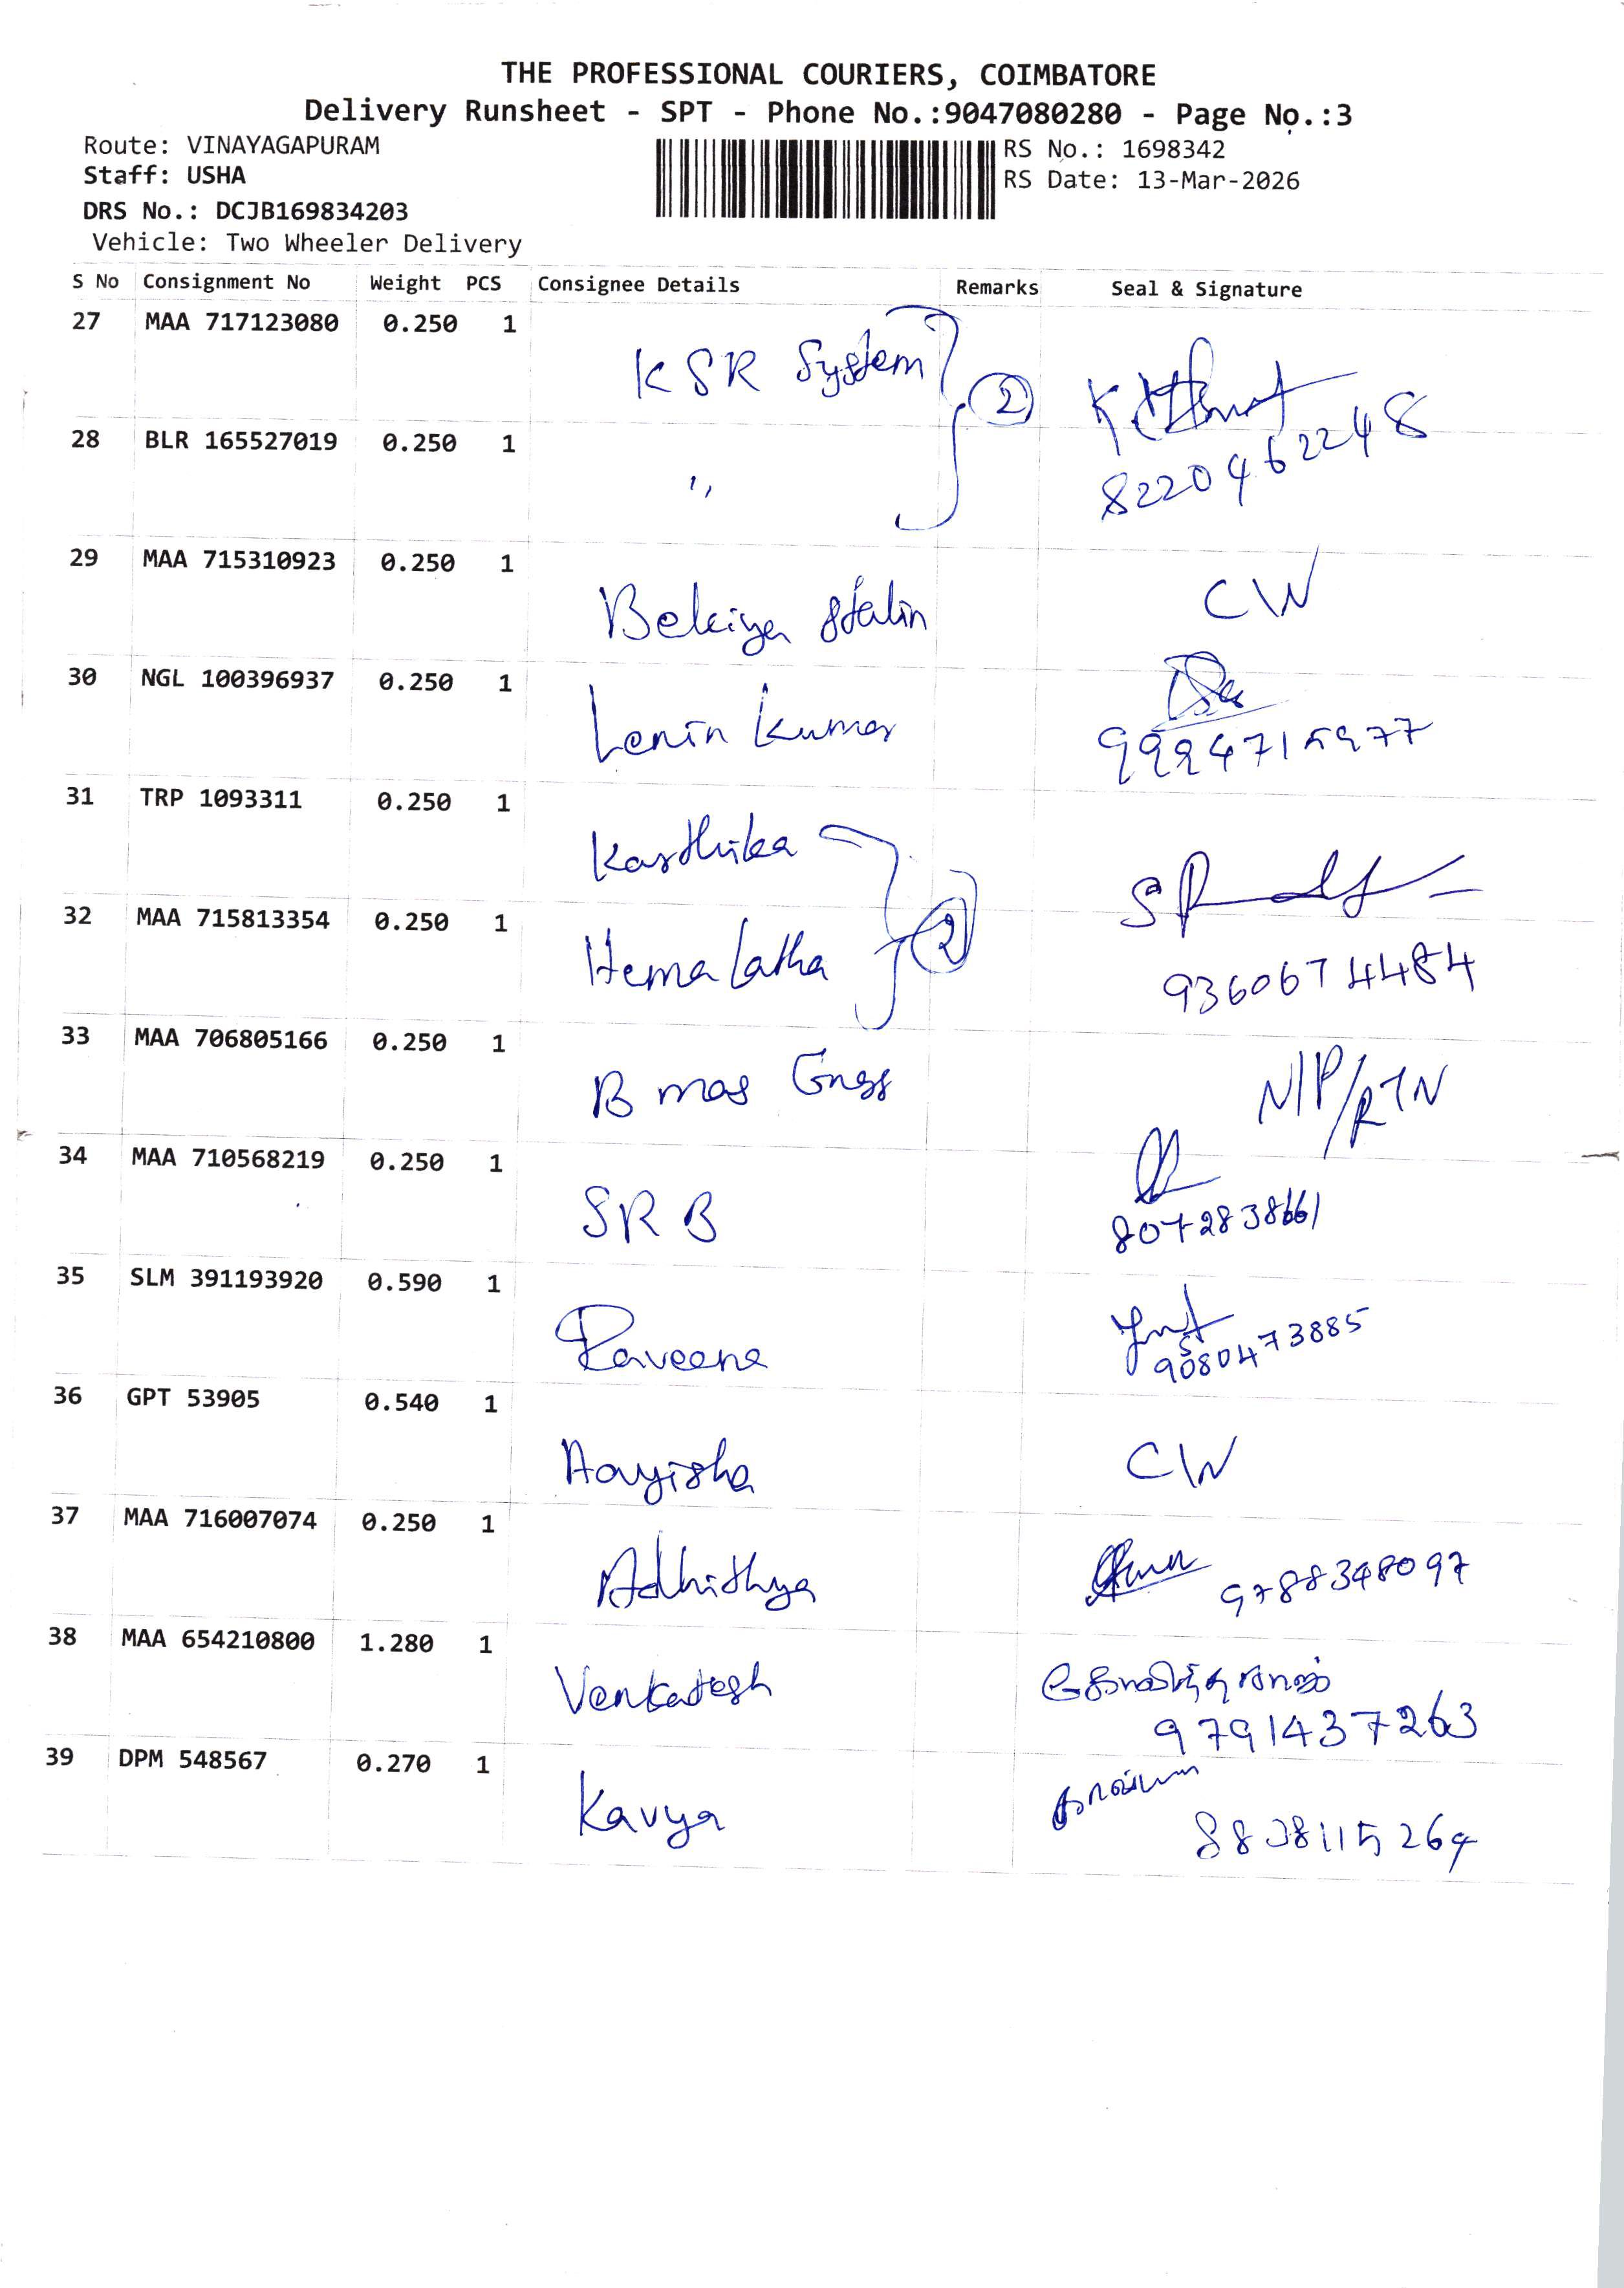 THE PROFESSIONAL COURIERS, COIMBATORE
Delivery Runsheet - SPT - Phone No.:9047080280 - Page No.:3
Route: VINAYAGAPURAM RS No.: 1698342
Staff: USHA RS Date: 13-Mar-2026
DRS No.: DCJB169834203
Vehicle: Two Wheeler Delivery
S No Consignment No Weight PCS Consignee Details Remarks Seal & Signature
27 MAA 717123080 0.250 1 KSR System 2
28 BLR 165527019 0.250 1 ,, 8220462248
29 MAA 715310923 0.250 1 Stalin CW
30 NGL 100396937 0.250 1 Lenin Kumar
31 TRP 1093311 0.250 1 Karthika
32 MAA 715813354 0.250 1 Hema latha 2 9360674484
33 MAA 706805166 0.250 1 B mas N/P/RTN
34 MAA 710568219 0.250 1 SRB
35 SLM 391193920 0.590 1 Raveena 9080473885
36 GPT 53905 0.540 1 Aayisha CW
37 MAA 716007074 0.250 1 Adhithya 9788348097
38 MAA 654210800 1.280 1 Venkatesh 9791437263
39 DPM 548567 0.270 1 Kavya காவ்யா 8838115264